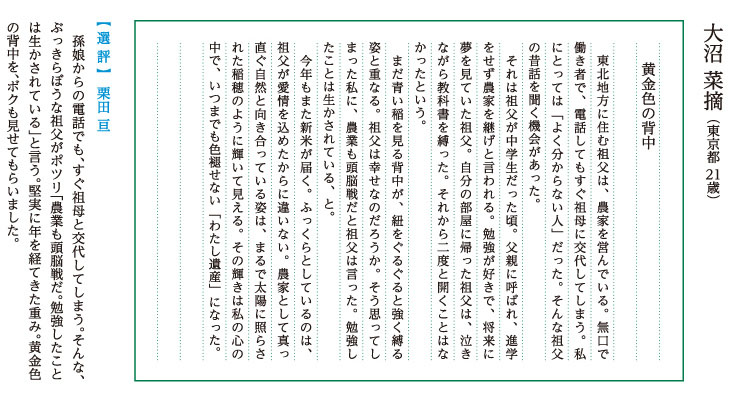 大沼 菜摘（東京都 21歳）
黄金色の背中
東北地方に住む祖父は、農家を営んでいる。無口で
働き者で、電話してもすぐ祖母に交代してしまう。私
にとっては「よく分からない人」だった。そんな祖父
の昔話を聞く機会があった。
それは祖父が中学生だった頃。父親に呼ばれ、進学
をせず農家を継げと言われる。勉強が好きで、将来に
夢を見ていた祖父。自分の部屋に帰った祖父は、泣き
ながら教科書を縛った。それから二度と開くことはな
かったという。
まだ青い稲を見る背中が、紐をぐるぐると強く縛る
姿と重なる。祖父は幸せなのだろうか。そう思ってし
まった私に、農業も頭脳戦だと祖父は言った。勉強し
たことは生かされている、と。
今年もまた新米が届く。ふっくらとしているのは、
祖父が愛情を込めたからに違いない。農家として真っ
直ぐ自然と向き合っている姿は、まるで太陽に照らさ
れた稲穂のように輝いて見える。その輝きは私の心の
中で、いつまでも色褪せない「わたし遺産」になった。
【選評】 栗田 亘
孫娘からの電話でも、すぐ祖母と交代してしまう。そんな、
ぶっきらぼうな祖父がポツリ「農業も頭脳戦だ。勉強したこと
は生かされている」と言う。堅実に年を経てきた重み。黄金色
の背中を、ボクも見せてもらいました。